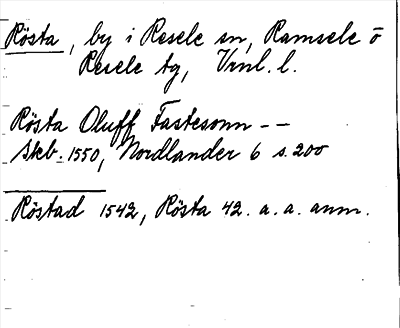 Rösta, by i Resele sn, Ramsele o
Resele tg, Vrnl. l.
Rösta Oluff Fastesonn - -
Skb. 1550, Nordlander 6 s. 200
Röstad 1542, Rösta 42. a. a. anm.